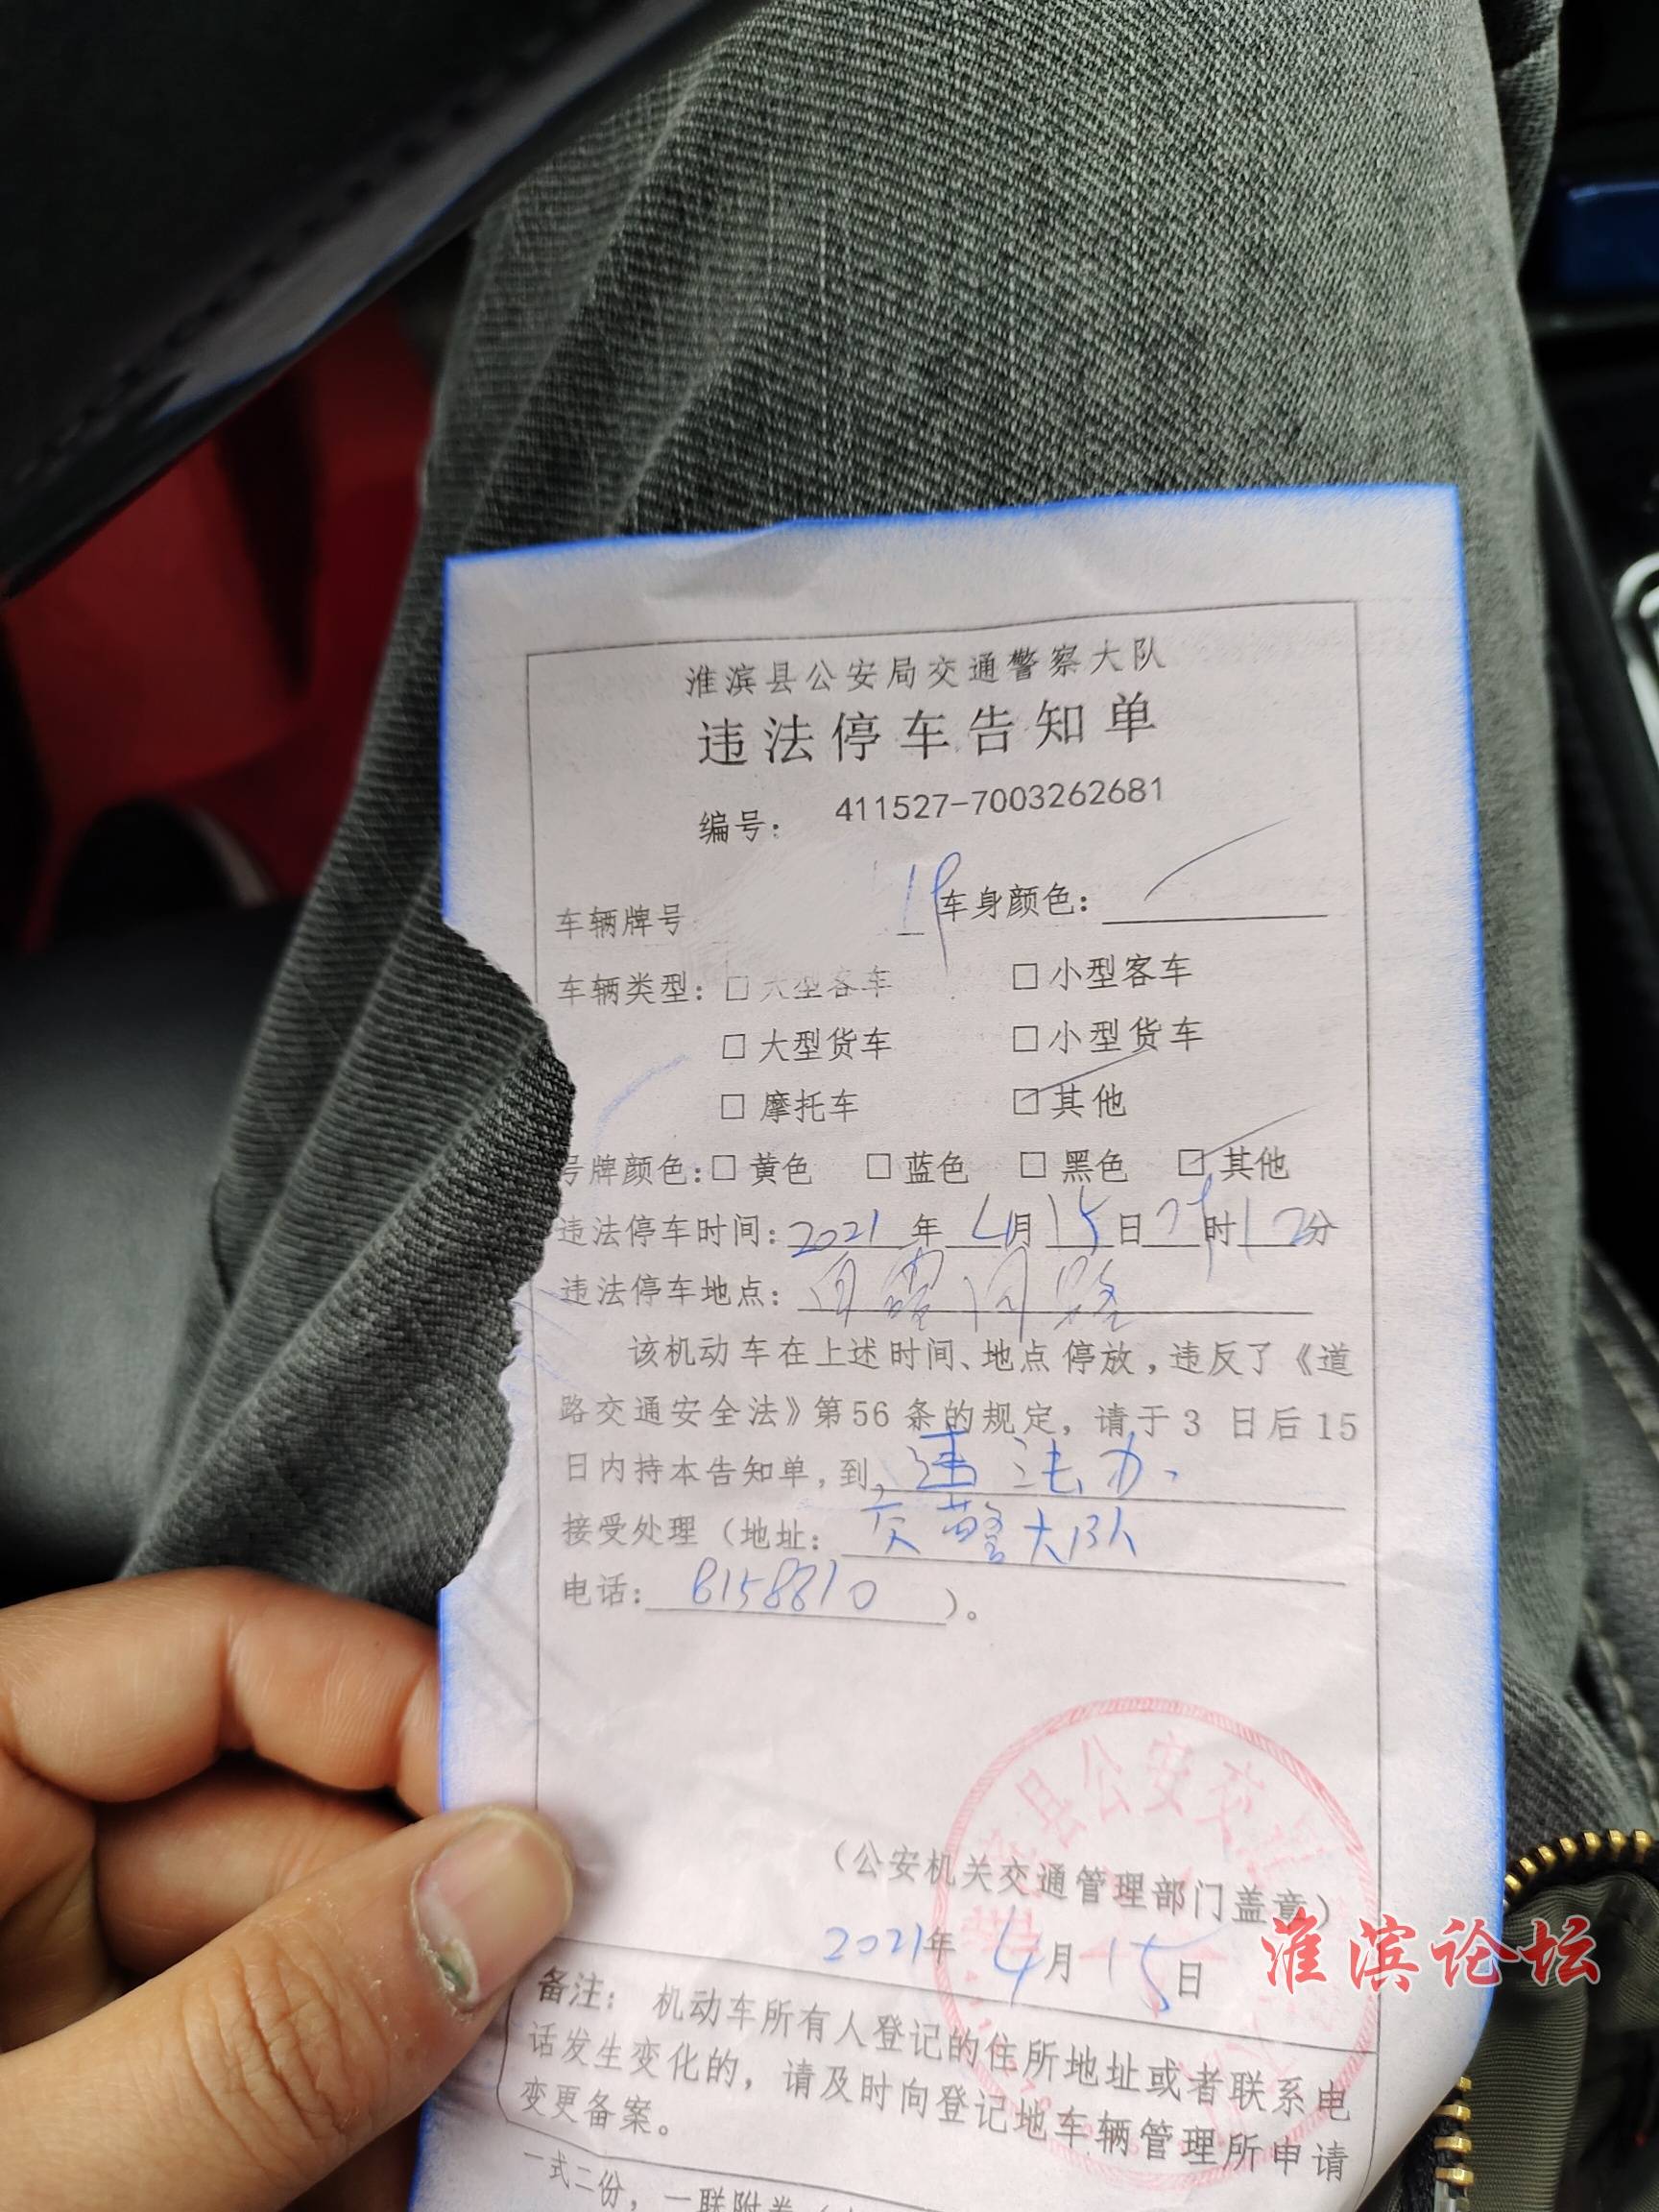 淮滨县公安局交通警察大队
违法停车告知单
编号: 411527-7003262681
车辆牌号 车身颜色:
车辆类型: □大型客车 □小型客车
□大型货车 □小型货车
□摩托车 ☑其他
号牌颜色:□黄色 □蓝色 □黑色 ☑其他
违法停车时间: 2021年 4月 15日 时 12分
违法停车地点: 路
该机动车在上述时间、地点停放,违反了《道
路交通安全法》第56条的规定,请于3 日后15
日内持本告知单,到 违法办
接受处理(地址: 交警大队
电话: 8158810 )。
(公安机关交通管理部门盖章)
2021年 4月 15日
备注: 机动车所有人登记的住所地址或者联系电
话发生变化的,请及时向登记地车辆管理所申请
变更备案。
一式二份,一联附卷
县公安交
淮滨论坛